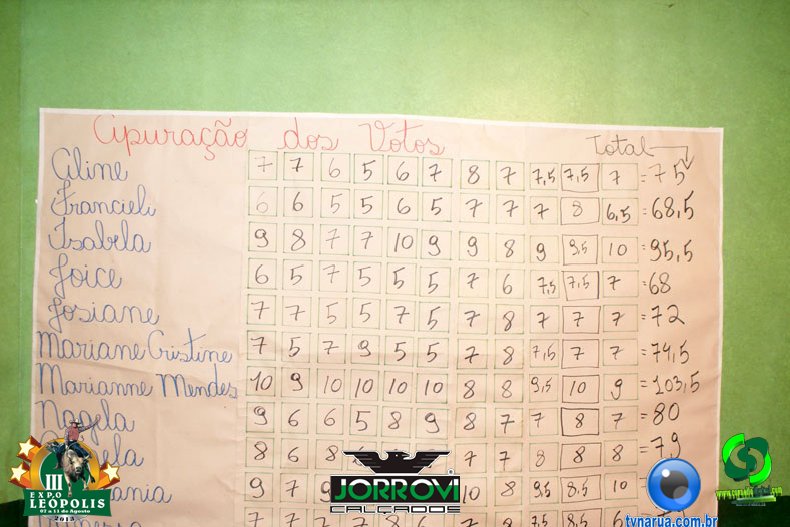 Apuração dos Votos Total
Aline 7 7 6 5 6 7 8 7 7,5 7,5 7 = 75
Francieli 6 6 5 5 6 5 7 7 7 8 6,5 = 68,5
Isabela 9 8 7 7 10 9 9 8 9 9,5 10 = 95,5
Joice 6 5 7 5 5 5 7 6 7,5 7,5 7 = 68
Josiane 7 7 5 5 7 5 7 8 7 7 7 = 72
Mariane Cristine 7 5 7 9 5 5 7 8 7,5 7 7 = 74,5
Marianne Mendes 10 9 10 10 10 10 8 8 9,5 10 9 = 103,5
Nagela 9 6 6 5 8 9 8 7 7 8 7 = 80
8 6 8 7 7 8 8 8 = 79
9 7 9 10 8 9,5 8,5 10
III
EXPO
LEÓPOLIS
07 a 11 de Agosto
2013
JORROVI
CALÇADOS
tvnarua.com.br